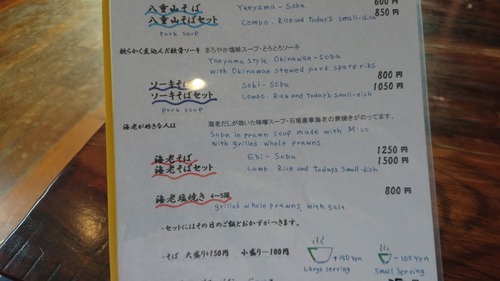 八重山そば Yaeyama - Soba 600 円
八重山そばセット Combo. Rice and today's small-dish 850 円
Pork soup
軟らかく煮込んだ軟骨ソーキ まろやか塩豚スープ・とろとろソーキ
Yaeyama style Okinawan-Soba
with Okinawan stewed pork spare ribs
ソーキそば Soki - Soba 800 円
ソーキそばセット Combo. Rice and today's small-dish 1050 円
Pork soup
海老が好きな人は 海老だしが効いた味噌スープ・石垣産車海老の素焼きがのってます。
Soba in prawn soup made with Miso
with grilled whole prawns
海老そば Ebi - Soba 1250 円
海老そばセット Comb. Rice and today's small-dish 1500 円
海老塩焼き 4〜5尾 800 円
grilled whole prawns with salt.
・セットにはその日のご飯とおかずがつきます。
・そば 大盛り+150円 小盛り−100円 +150 Yen −100 Yen
Large serving Small serving